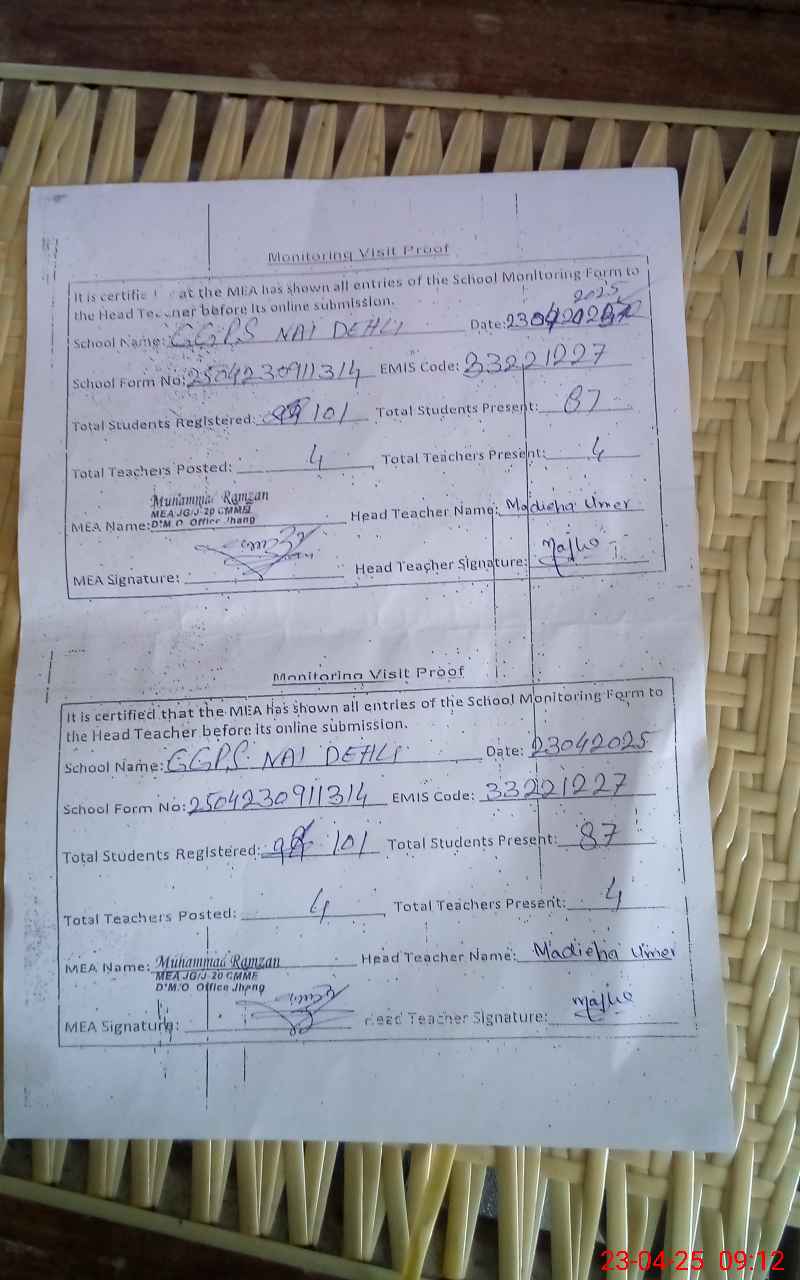 Monitoring Visit Proof
It is certifie at the MEA has shown all entries of the School Monitoring Form to
the Head Teacher before its online submission.
2025
School Name: GGPS NAI DEHLI Date: 23042025
School Form No: 2504230911314 EMIS Code: 33221227
Total Students Registered: 101 Total Students Present: 87
Total Teachers Posted: 4, Total Teachers Present: 4
Muhammad Ramzan
MEA JG/J-20 CMMF
MEA Name: D'M.O Office Jhang Head Teacher Name: Madieha Umer
MEA Signature: Head Teacher Signature:
Monitoring Visit Proof
It is certified that the MEA has shown all entries of the School Monitoring Form to
the Head Teacher before its online submission.
School Name: GGPS NAI DEHLI Date: 23042025
School Form No: 2504230911314 EMIS Code: 33221227
Total Students Registered: 101 Total Students Present: 87
Total Teachers Posted: 4, Total Teachers Present: 4
MEA Name: Muhammad Ramzan Head Teacher Name: Madieha Umer
MEA JG/J-20 CMMF
D'M.O Office Jhang
MEA Signature: Head Teacher Signature:
23-04-25 09:12